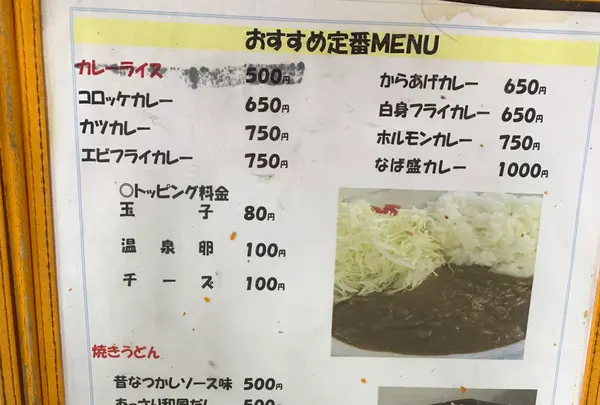 おすすめ定番MENU
カレーライス 500円
コロッケカレー 650円
カツカレー 750円
エビフライカレー 750円
からあげカレー 650円
白身フライカレー 650円
ホルモンカレー 750円
なば盛カレー 1000円
○トッピング料金
玉子 80円
温泉卵 100円
チーズ 100円
焼きうどん
昔なつかしソース味 500円
あっさり和風だし 500円